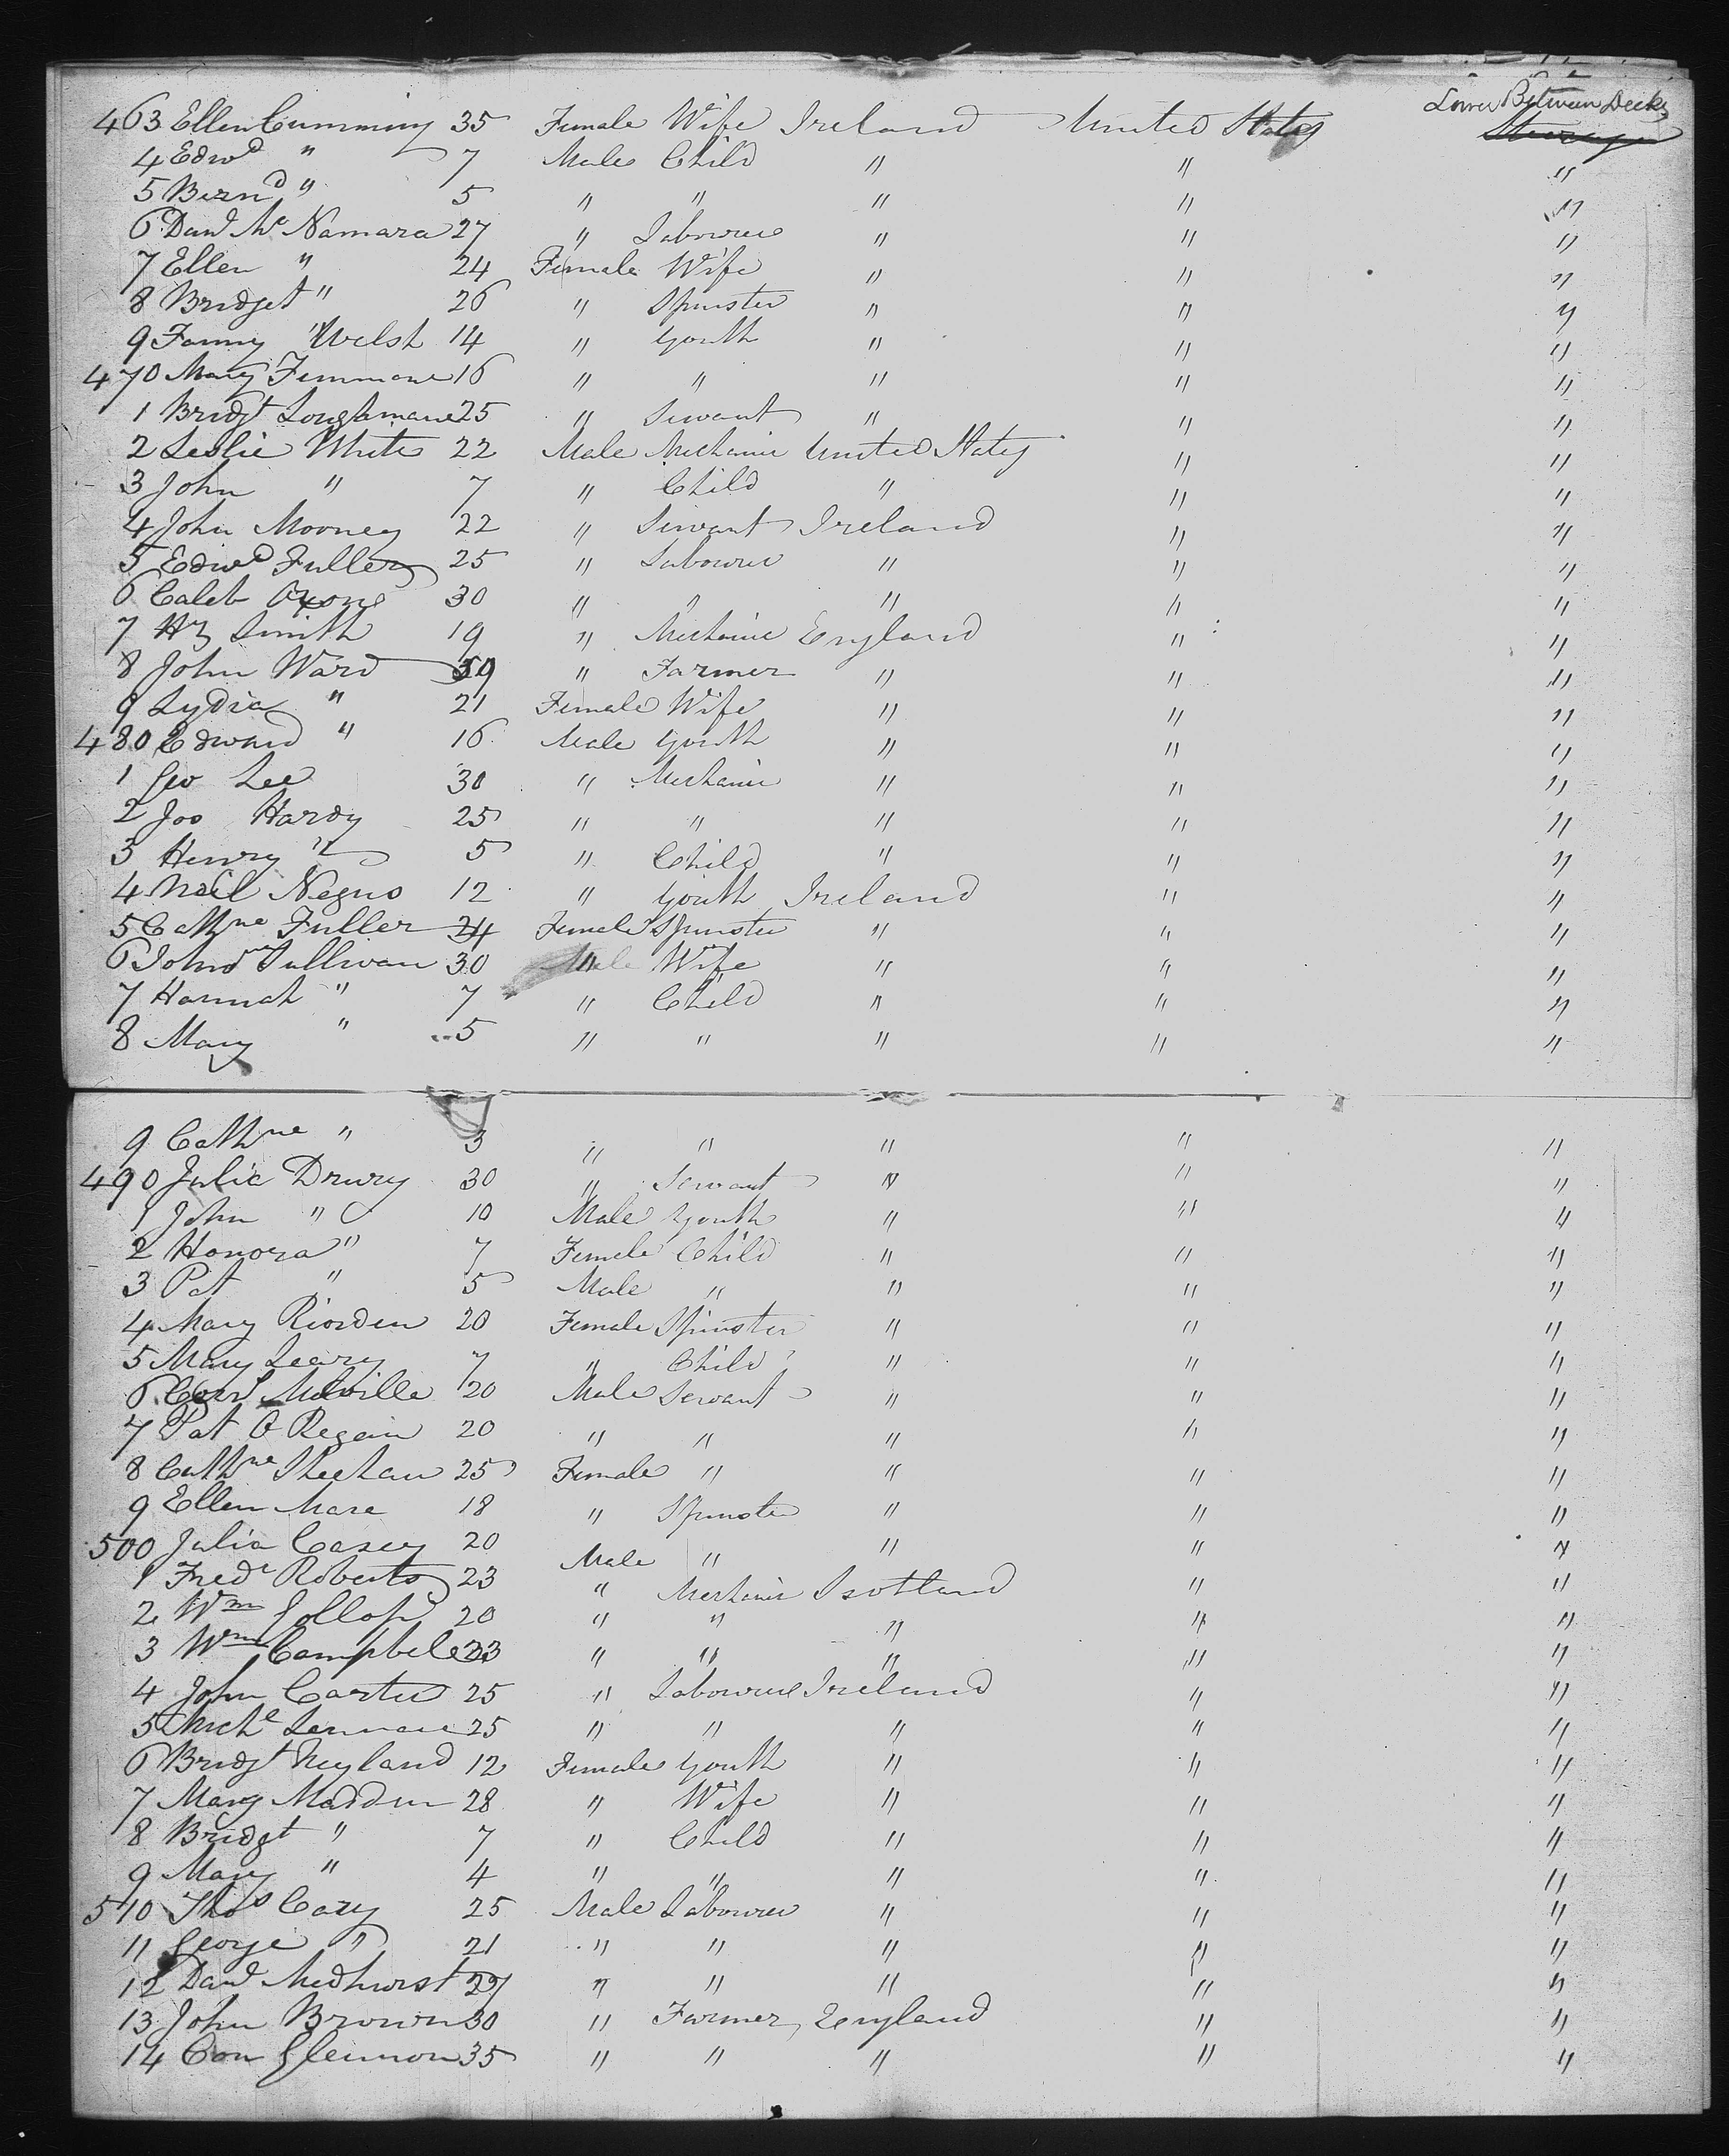 Lower Between Decks
463 Ellen Cumming 35 Female Wife Ireland United States Steerage
4 Edwd " 7 Male Child " " "
5 Bernd " 5 " " " " "
6 Dand Mc Namara 27 " Labourer " " "
7 Ellen " 24 Female Wife " " "
8 Bridget " 26 " Spinster " " "
9 Fanny Welsh 14 " Youth " " "
470 Mary 16 " " " " "
1 Bridgt Loughmane 25 " Servant " " "
2 Leslie White 22 Male Mechanic United States " "
3 John " 7 " Child " " "
4 John Mooney 22 " Servant Ireland " "
5 Edwd Fuller 25 " Labourer " " "
6 Caleb 30 " " " " "
7 Hy Smith 19 " Mechanic England " "
8 John Ward 39 " Farmer " " "
9 Lydia " 21 Female Wife " " "
480 Edward " 16 Male Youth " " "
1 Geo Lee 30 " Mechanic " " "
2 Jos Hardy 25 " " " " "
3 Henry " 5 " Child " " "
4 Neil Negus 12 " Youth Ireland " "
5 Cathne Fuller 24 Female Spinster " " "
6 Sullivan 30 " Wife " " "
7 Hannah " 7 " Child " " "
8 Mary " 5 " " " " "
9 Cathne " 3 " " " " "
490 Julia Drury 30 " Servant " " "
1 John " 10 Male Youth " " "
2 Honora " 7 Female Child " " "
3 Pat " 5 Male " " " "
4 Mary Riorden 20 Female Spinster " " "
5 Mary Leary 7 " Child " " "
6 Melville 20 Male Servant " " "
7 Pat O Regain 20 " " " " "
8 Cathne Sheehan 25 Female " " " "
9 Ellen Mare 18 " Spinster " " "
500 Julia Casey 20 Male " " " "
1 Fredk Roberts 23 " Mechanic Scotland " "
2 Wm Gollop 20 " " " " "
3 Wm Campbell 23 " " " " "
4 John Carter 25 " Labourer Ireland " "
5 Michl Lennane 25 " " " " "
6 Bridgt Neyland 12 Female Youth " " "
7 Mary Madden 28 " Wife " " "
8 Bridgt " 7 " Child " " "
9 Mary " 4 " " " " "
510 Thos Cary 25 Male Labourer " " "
11 George " 21 " " " " "
12 Dand Medhurst 27 " " " " "
13 John Brown 30 " Farmer England " "
14 Con Glennon 35 " " " " "